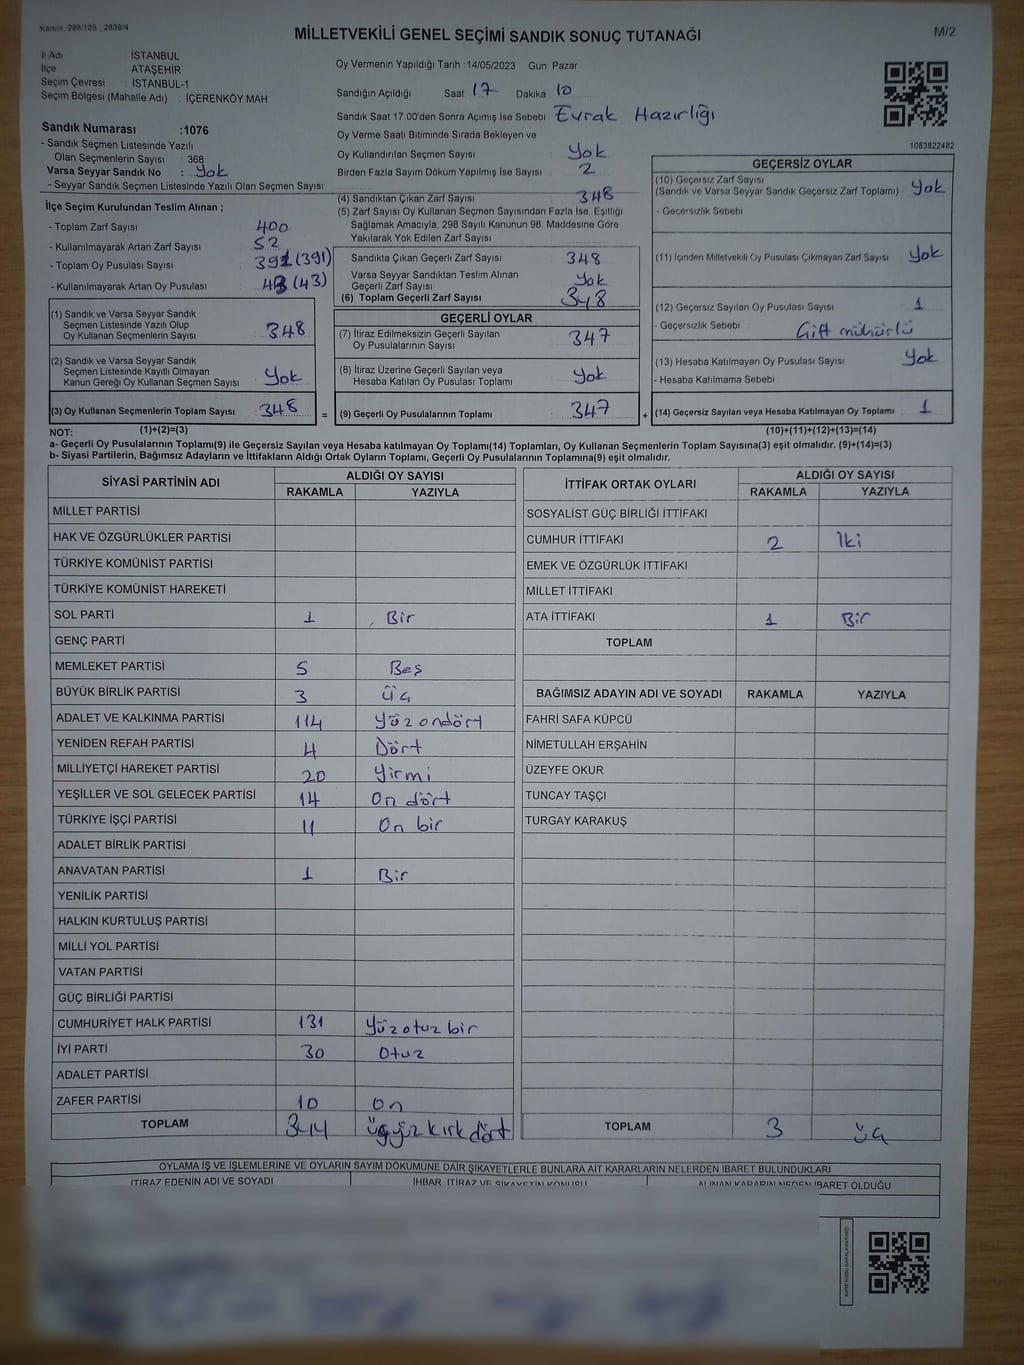 Kanun. 298/105 , 2839/4
MİLLETVEKİLİ GENEL SEÇİMİ SANDIK SONUÇ TUTANAĞI
M/2
İl Adı İSTANBUL
İlçe ATAŞEHİR
Seçim Çevresi : İSTANBUL-1
Seçim Bölgesi (Mahalle Adı) : İÇERENKÖY MAH.
Oy Vermenin Yapıldığı Tarih :14/05/2023 Gün: Pazar
Sandığın Açıldığı Saat 17 Dakika 10
Sandık Saat 17.00'den Sonra Açımış İse Sebebi Evrak Hazırlığı
Oy Verme Saati Bitiminde Sırada Bekleyen ve
Oy Kullandırılan Seçmen Sayısı Yok
Birden Fazla Sayım Döküm Yapılmış İse Sayısı 2
1063822482
Sandık Numarası :1076
- Sandık Seçmen Listesinde Yazılı
Olan Seçmenlerin Sayısı 368
Varsa Seyyar Sandık No : Yok
- Seyyar Sandık Seçmen Listesinde Yazılı Olan Seçmen Sayısı:
İlçe Seçim Kurulundan Teslim Alınan ;
- Toplam Zarf Sayısı : 400
- Kullanılmayarak Artan Zarf Sayısı : 52
- Toplam Oy Pusulası Sayısı : 391 (391)
- Kullanılmayarak Artan Oy Pusulası : 43 (43)
(1) Sandık ve Varsa Seyyar Sandık
Seçmen Listesinde Yazılı Olup
Oy Kullanan Seçmenlerin Sayısı 348
(2) Sandık ve Varsa Seyyar Sandık
Seçmen Listesinde Kayıtlı Olmayan
Kanun Gereği Oy Kullanan Seçmen Sayısı Yok
(3) Oy Kullanan Seçmenlerin Toplam Sayısı 348
(4) Sandıktan Çıkan Zarf Sayısı 348
(5) Zarf Sayısı Oy Kullanan Seçmen Sayısından Fazla İse, Eşitliği
Sağlamak Amacıyla, 298 Sayılı Kanunun 98. Maddesine Göre
Yakılarak Yok Edilen Zarf Sayısı
Sandıkta Çıkan Geçerli Zarf Sayısı 348
Varsa Seyyar Sandıktan Teslim Alınan
Geçerli Zarf Sayısı Yok
(6) Toplam Geçerli Zarf Sayısı 348
GEÇERLİ OYLAR
(7) İtiraz Edilmeksizin Geçerli Sayılan
Oy Pusulalarının Sayısı 347
(8) İtiraz Üzerine Geçerli Sayılan veya
Hesaba Katılan Oy Pusulası Toplamı Yok
= (9) Geçerli Oy Pusulalarının Toplamı 347
GEÇERSİZ OYLAR
(10) Geçersiz Zarf Sayısı
(Sandık ve Varsa Seyyar Sandık Geçersiz Zarf Toplamı) Yok
- Geçersizlik Sebebi
(11) İçinden Milletvekili Oy Pusulası Çıkmayan Zarf Sayısı Yok
(12) Geçersiz Sayılan Oy Pusulası Sayısı 1
- Geçersizlik Sebebi Çift mühürlü
(13) Hesaba Katılmayan Oy Pusulası Sayısı Yok
- Hesaba Katılmama Sebebi
+ (14) Geçersiz Sayılan veya Hesaba Katılmayan Oy Toplamı 1
NOT: (1)+(2)=(3) (10)+(11)+(12)+(13)=(14)
a- Geçerli Oy Pusulalarının Toplamı(9) ile Geçersiz Sayılan veya Hesaba katılmayan Oy Toplamı(14) Toplamları, Oy Kullanan Seçmenlerin Toplam Sayısına(3) eşit olmalıdır. (9)+(14)=(3)
b- Siyasi Partilerin, Bağımsız Adayların ve İttifakların Aldığı Ortak Oyların Toplamı, Geçerli Oy Pusulalarının Toplamına(9) eşit olmalıdır.
SİYASİ PARTİNİN ADI ALDIĞI OY SAYISI
RAKAMLA YAZIYLA
MİLLET PARTİSİ
HAK VE ÖZGÜRLÜKLER PARTİSİ
TÜRKİYE KOMÜNİST PARTİSİ
TÜRKİYE KOMÜNİST HAREKETİ
SOL PARTİ 1 Bir
GENÇ PARTİ
MEMLEKET PARTİSİ 5 Beş
BÜYÜK BİRLİK PARTİSİ 3 Üç
ADALET VE KALKINMA PARTİSİ 114 Yüzondört
YENİDEN REFAH PARTİSİ 4 Dört
MİLLİYETÇİ HAREKET PARTİSİ 20 Yirmi
YEŞİLLER VE SOL GELECEK PARTİSİ 14 On dört
TÜRKİYE İŞÇİ PARTİSİ 11 On bir
ADALET BİRLİK PARTİSİ
ANAVATAN PARTİSİ 1 Bir
YENİLİK PARTİSİ
HALKIN KURTULUŞ PARTİSİ
MİLLİ YOL PARTİSİ
VATAN PARTİSİ
GÜÇ BİRLİĞİ PARTİSİ
CUMHURİYET HALK PARTİSİ 131 Yüzotuzbir
İYİ PARTİ 30 Otuz
ADALET PARTİSİ
ZAFER PARTİSİ 10 On
TOPLAM 344 üçyüzkırkdört
İTTİFAK ORTAK OYLARI ALDIĞI OY SAYISI
RAKAMLA YAZIYLA
SOSYALİST GÜÇ BİRLİĞİ İTTİFAKI
CUMHUR İTTİFAKI 2 İki
EMEK VE ÖZGÜRLÜK İTTİFAKI
MİLLET İTTİFAKI
ATA İTTİFAKI 1 Bir
TOPLAM
BAĞIMSIZ ADAYIN ADI VE SOYADI RAKAMLA YAZIYLA
FAHRİ SAFA KÜPCÜ
NİMETULLAH ERŞAHİN
ÜZEYFE OKUR
TUNCAY TAŞÇI
TURGAY KARAKUŞ
TOPLAM 3 üç
OYLAMA İŞ VE İŞLEMLERİNE VE OYLARIN SAYIM DÖKÜMÜNE DAİR ŞİKAYETLERLE BUNLARA AİT KARARLARIN NELERDEN İBARET BULUNDUKLARI
İTİRAZ EDENİN ADI VE SOYADI İHBAR, İTİRAZ VE ŞİKAYETİN KONUSU ALINAN KARARIN NEDEN İBARET OLDUĞU